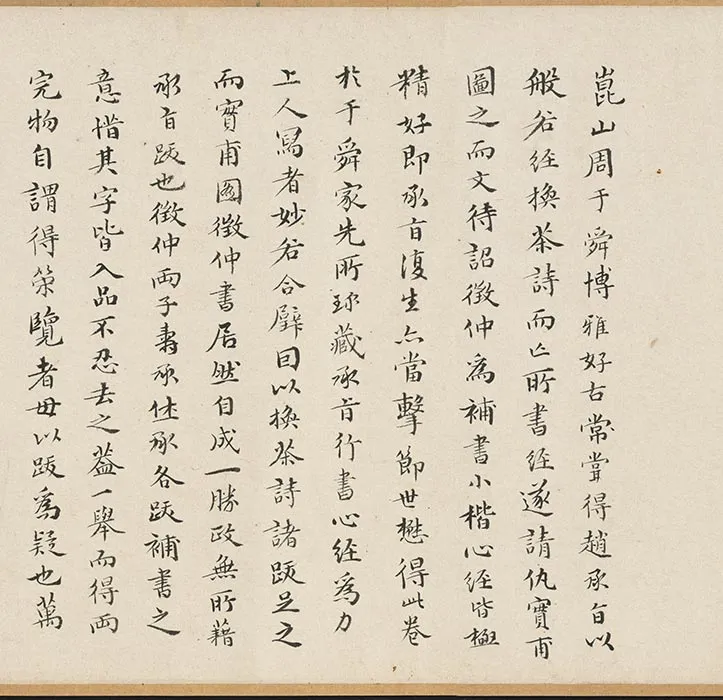 崑山周于舜博雅好古常嘗得趙承旨以
般若經換茶詩而亡所書經遂請仇實甫
圖之而文待詔徵仲為補書小楷心經皆極
精好即承旨復生亦當擊節世懋得此卷
於于舜家先所珍藏承旨行書心經為力
上人寫者妙若合璧因以換茶詩諸跋足之
而實甫圖徵仲書居然自成一勝政無所藉
承旨跋也徵仲兩子壽承休承各跋補書之
意惜其字皆入品不忍去之蓋一舉而得兩
完物自謂得策覽者毋以跋為疑也萬